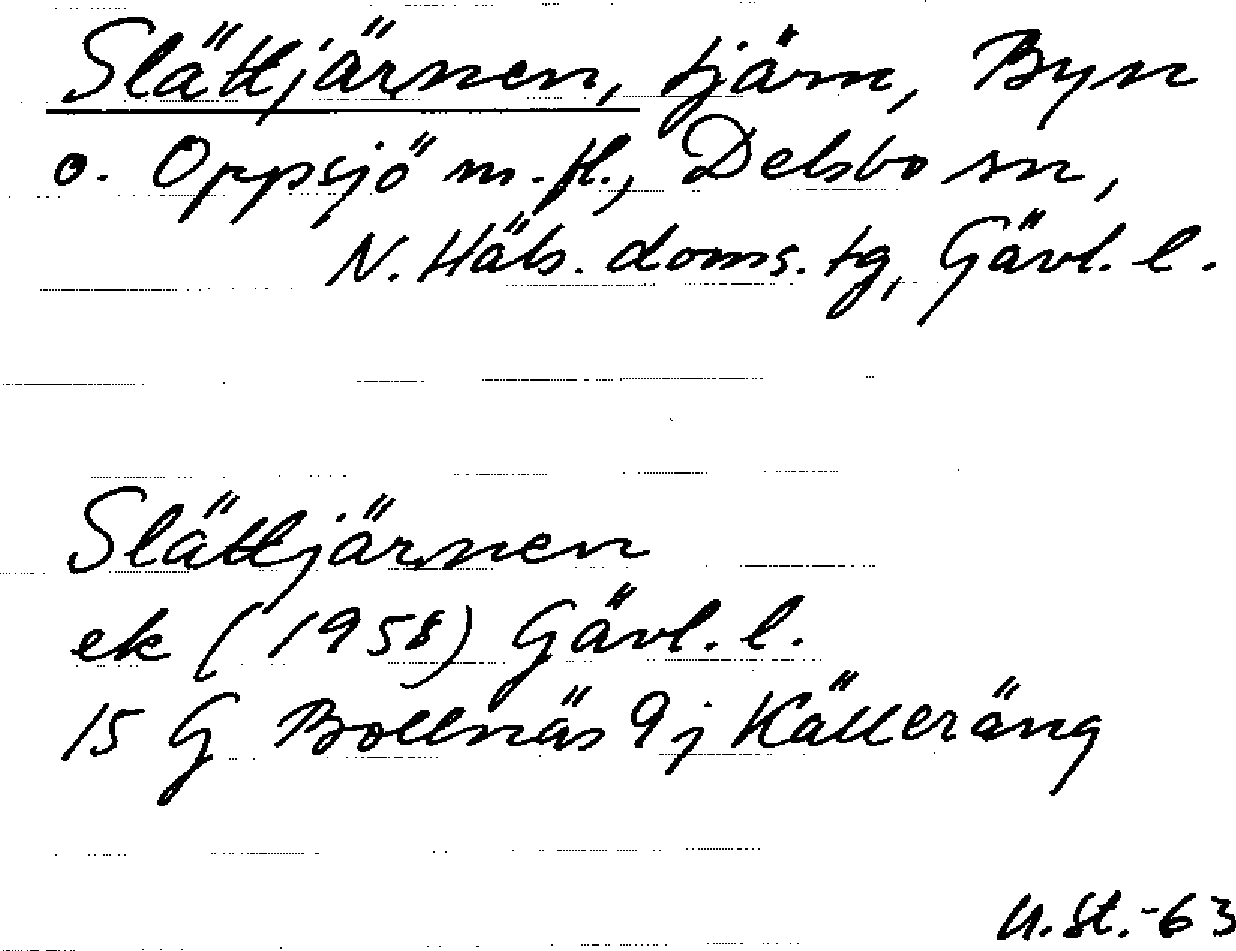 Slättjärnen, tjärn, Byn
o. Oppsjö m.fl., Delsbo sn,
N. Häls. doms. tg, Gävl. l.
Slättjärnen
ek (1958) Gävl. l.
15 G Bollnäs 9j Källeräng
U.St.-63